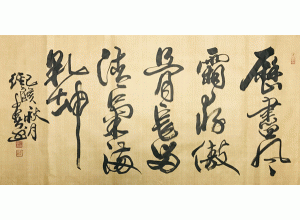 歷盡風
霜存傲
骨長留
清氣滿
乾坤
己亥秋月